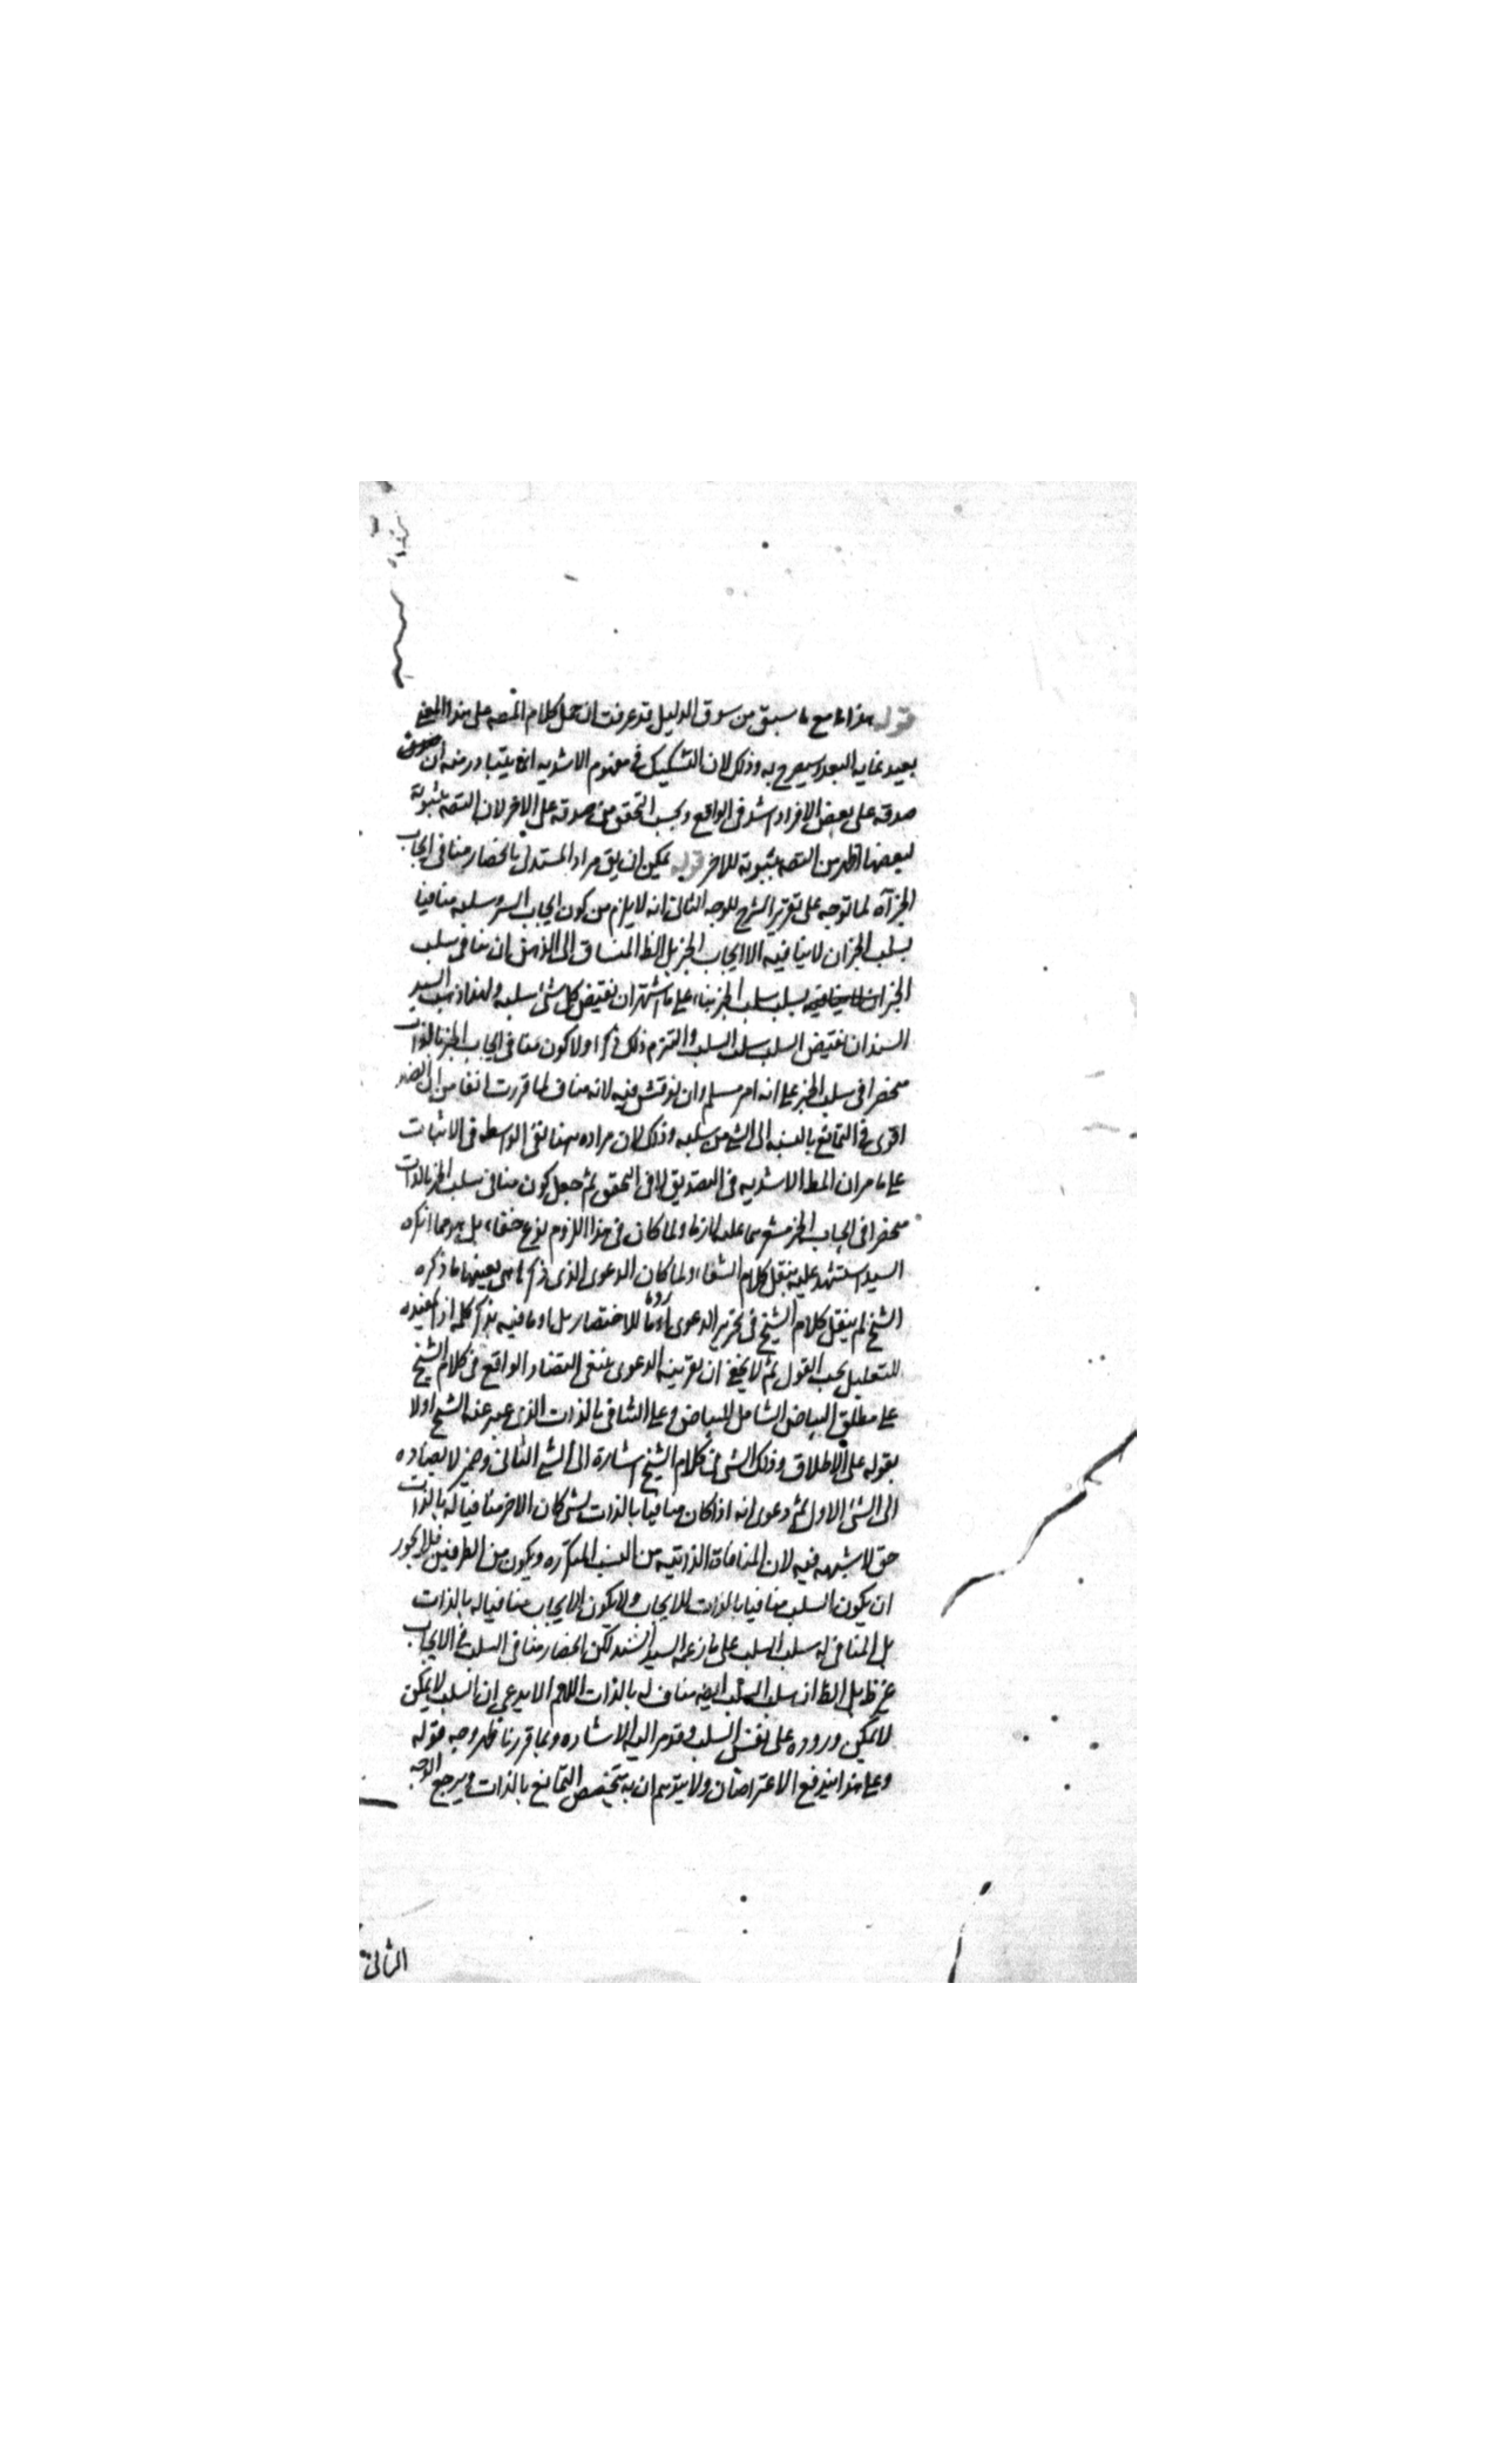 قوله هذا مع ما سبق من سوق الدليل قد عرفت ان حمل كلام المصه على هذا المعنى
بعيد غاية البعد وسيصرح به وذلك لان التشكيك في مفهوم الاشديه انما يتبادر منه ان
صدقه على بعض الافراد اشد في الواقع وبحسب التحقق من صدقه على الاخر لان التصه بثبوته
لبعضها اظهر من التصه بثبوته للاخر قوله يمكن ان يق مراد المستدل بانحصار منافي ايجاب
الخير آه لما توجه على تقرير الشرح للوجه الثاني انه لا يلزم من كون ايجاب الشر وسلبه منافيا
لسلب الخير ان لا ينافيه الا ايجاب الخير بل الظ المنساق الى الذهن ان منافي سلب
الخير سلب سلب الخير بناء على ما اشتهر ان نقيض كل شئ سلبه ولهذا ذهب السيد
السند ان نقيض السلب سلب السلب والتزم ذلك ذكر اولا كون منافي ايجاب الخير بالذات
منحصرا في سلب الخير على انه امر مسلم وان نوقش فيه لانه مناف لما قررت انفا من ان الضد
اقوى في التمانع بالنسبه الى الشئ من سلبه وذلك لان مراده بهذا نفي الواسطه في الاثبات
على ما مر ان المط الاشديه في التصديق لا في التحقق ثم جعل كون منافي سلب الخير بالذات
منحصرا في ايجاب الخير متفرعا عليه لازما ولما كان في هذا اللزوم نوع خفاء بل هو مما انكره
السيد استشهد عليه بنقل كلام الشفاء ولما كان الدعوى الذى ذكرها هي بعينها ما ذكره
الشيخ لم ينقل كلام الشيخ في تحرير الدعوى روما للاختصار بل اوما فيه بذكر كلمة اذ المفيده
للتعليل بحسب القول ثم لا يخفى ان بقرينه الدعوى يبتنى التضاد الواقع في كلام الشيخ
على مطلق البياض الشامل للبياض وعلى التنافي بالذات الذى عبر عنه الشيخ اولا
بقوله على الاطلاق وذلك الشئ في كلام الشيخ اشارة الى الشئ الثاني وضمير لا يضاده
الى الشئ الاول ثم دعوى انه اذا كان منافيا بالذات لشئ كان الاخر منافيا له بالذات
حق لا شبهه فيه لان المنافاة الذاتيه من النسب المتكرره ويكون من الطرفين فلا يجوز
ان يكون السلب منافيا بالذات للايجاب ولا يكون الايجاب منافيا له بالذات
بل المنافي له سلب السلب على ما زعمه السيد السند لكن انحصار منافي السلب في الايجاب
غير ظ بل الظ ان سلب السلب ايضه مناف له بالذات اللهم الا يدعى ان السلب لا يمكن
لا يمكن وروده على نفس السلب وقد مر اليه الاشاره وبما قررنا ظهر وجه قوله
وعلى هذا يندفع الاعتراضان ولا يتوهم ان به يتخصص التمانع بالذات ويرجع الوجه
الثاني